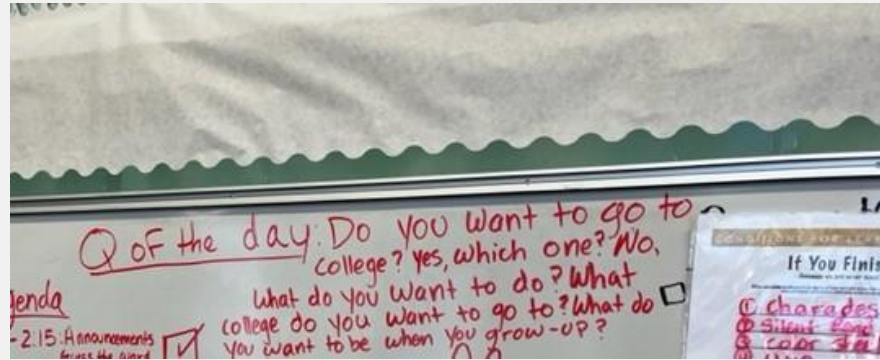 Q of the day: Do you want to go to
college? Yes, which one? No,
What do you want to do? What
college do you want to go to? What do
you want to be when you grow-up?
genda
-2:15: Announcements
guess the word
If You Finis
① charades
② Silent Read
③ color